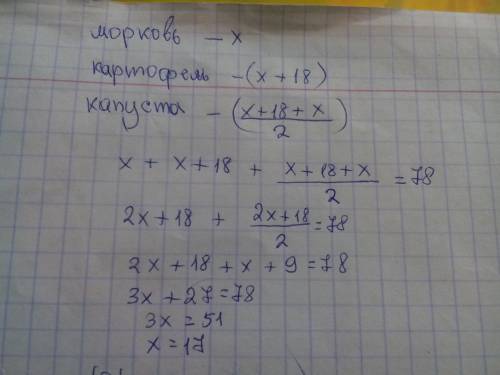 морковь – x
картофель – (x + 18)
капуста – (x+18+x / 2)
x + x + 18 + x+18+x / 2 = 78
2x + 18 + 2x+18 / 2 = 78
2x + 18 + x + 9 = 78
3x + 27 = 78
3x = 51
x = 17